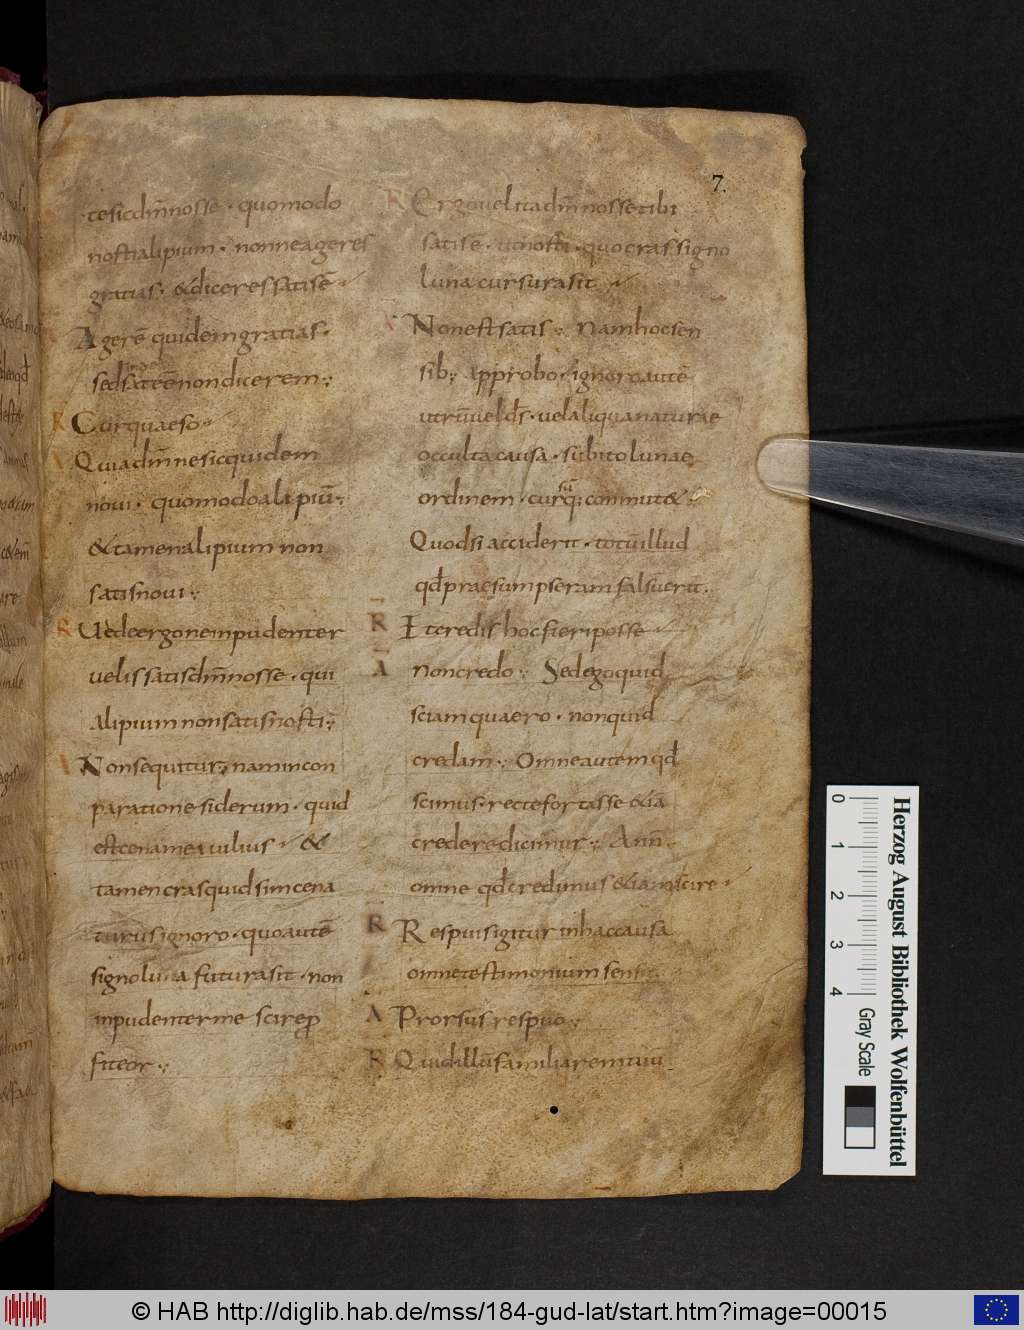 7.
te sic dm̄ nosse · quomodo
nosti alipium · nonne ageres
gratias · & diceres satis ē
Agerē quidem gratias ·
sed sat eē non dicerem
R Cur quaeso
A Quia dm̄ ne sic quidem
novi · quomodo alipiū
& tamen alipium non
satis novi
R Uide ergo ne inpudenter
velis satis dm̄ nosse · qui
alipium non satis nosti
A Non sequitur nam in con
paratione siderum · quid
est cena mea vilius · &
tamen cras quid sim cena
turus ignoro · quo autē
signo luna futura sit · non
inpudenter me scire p
fiteor
R Ergo vel ita dm̄ nosse tibi
satis ē · ut nosti · quo cras signo
luna cursura sit
A Non est satis nam hoc sen
sib; approbo · ignoro autē
utrū vel ds̄ · vel aliqua naturae
occulta causa · subito lunae
ordinem · cursū q; commut&
Quod si acciderit · totū illud
qd̄ praesumpseram falsū erit ·
R̄ Et credis hoc fieri posse
Ā non credo Sed ego quid
sciam quaero · non quid
credam Omne autem qd̄
scimus · recte fortasse &iā
credere dicimur An n̄
omne qd̄ credimus &iam scire
R̄ Respuis igitur in hac causa
omne testimonium sensū
A Prorsus respuo
R Quid illū familiarem tuū
0 1 2 3 4
Gray Scale
Herzog August Bibliothek Wolfenbüttel
© HAB http://diglib.hab.de/mss/184-gud-lat/start.htm?image=00015